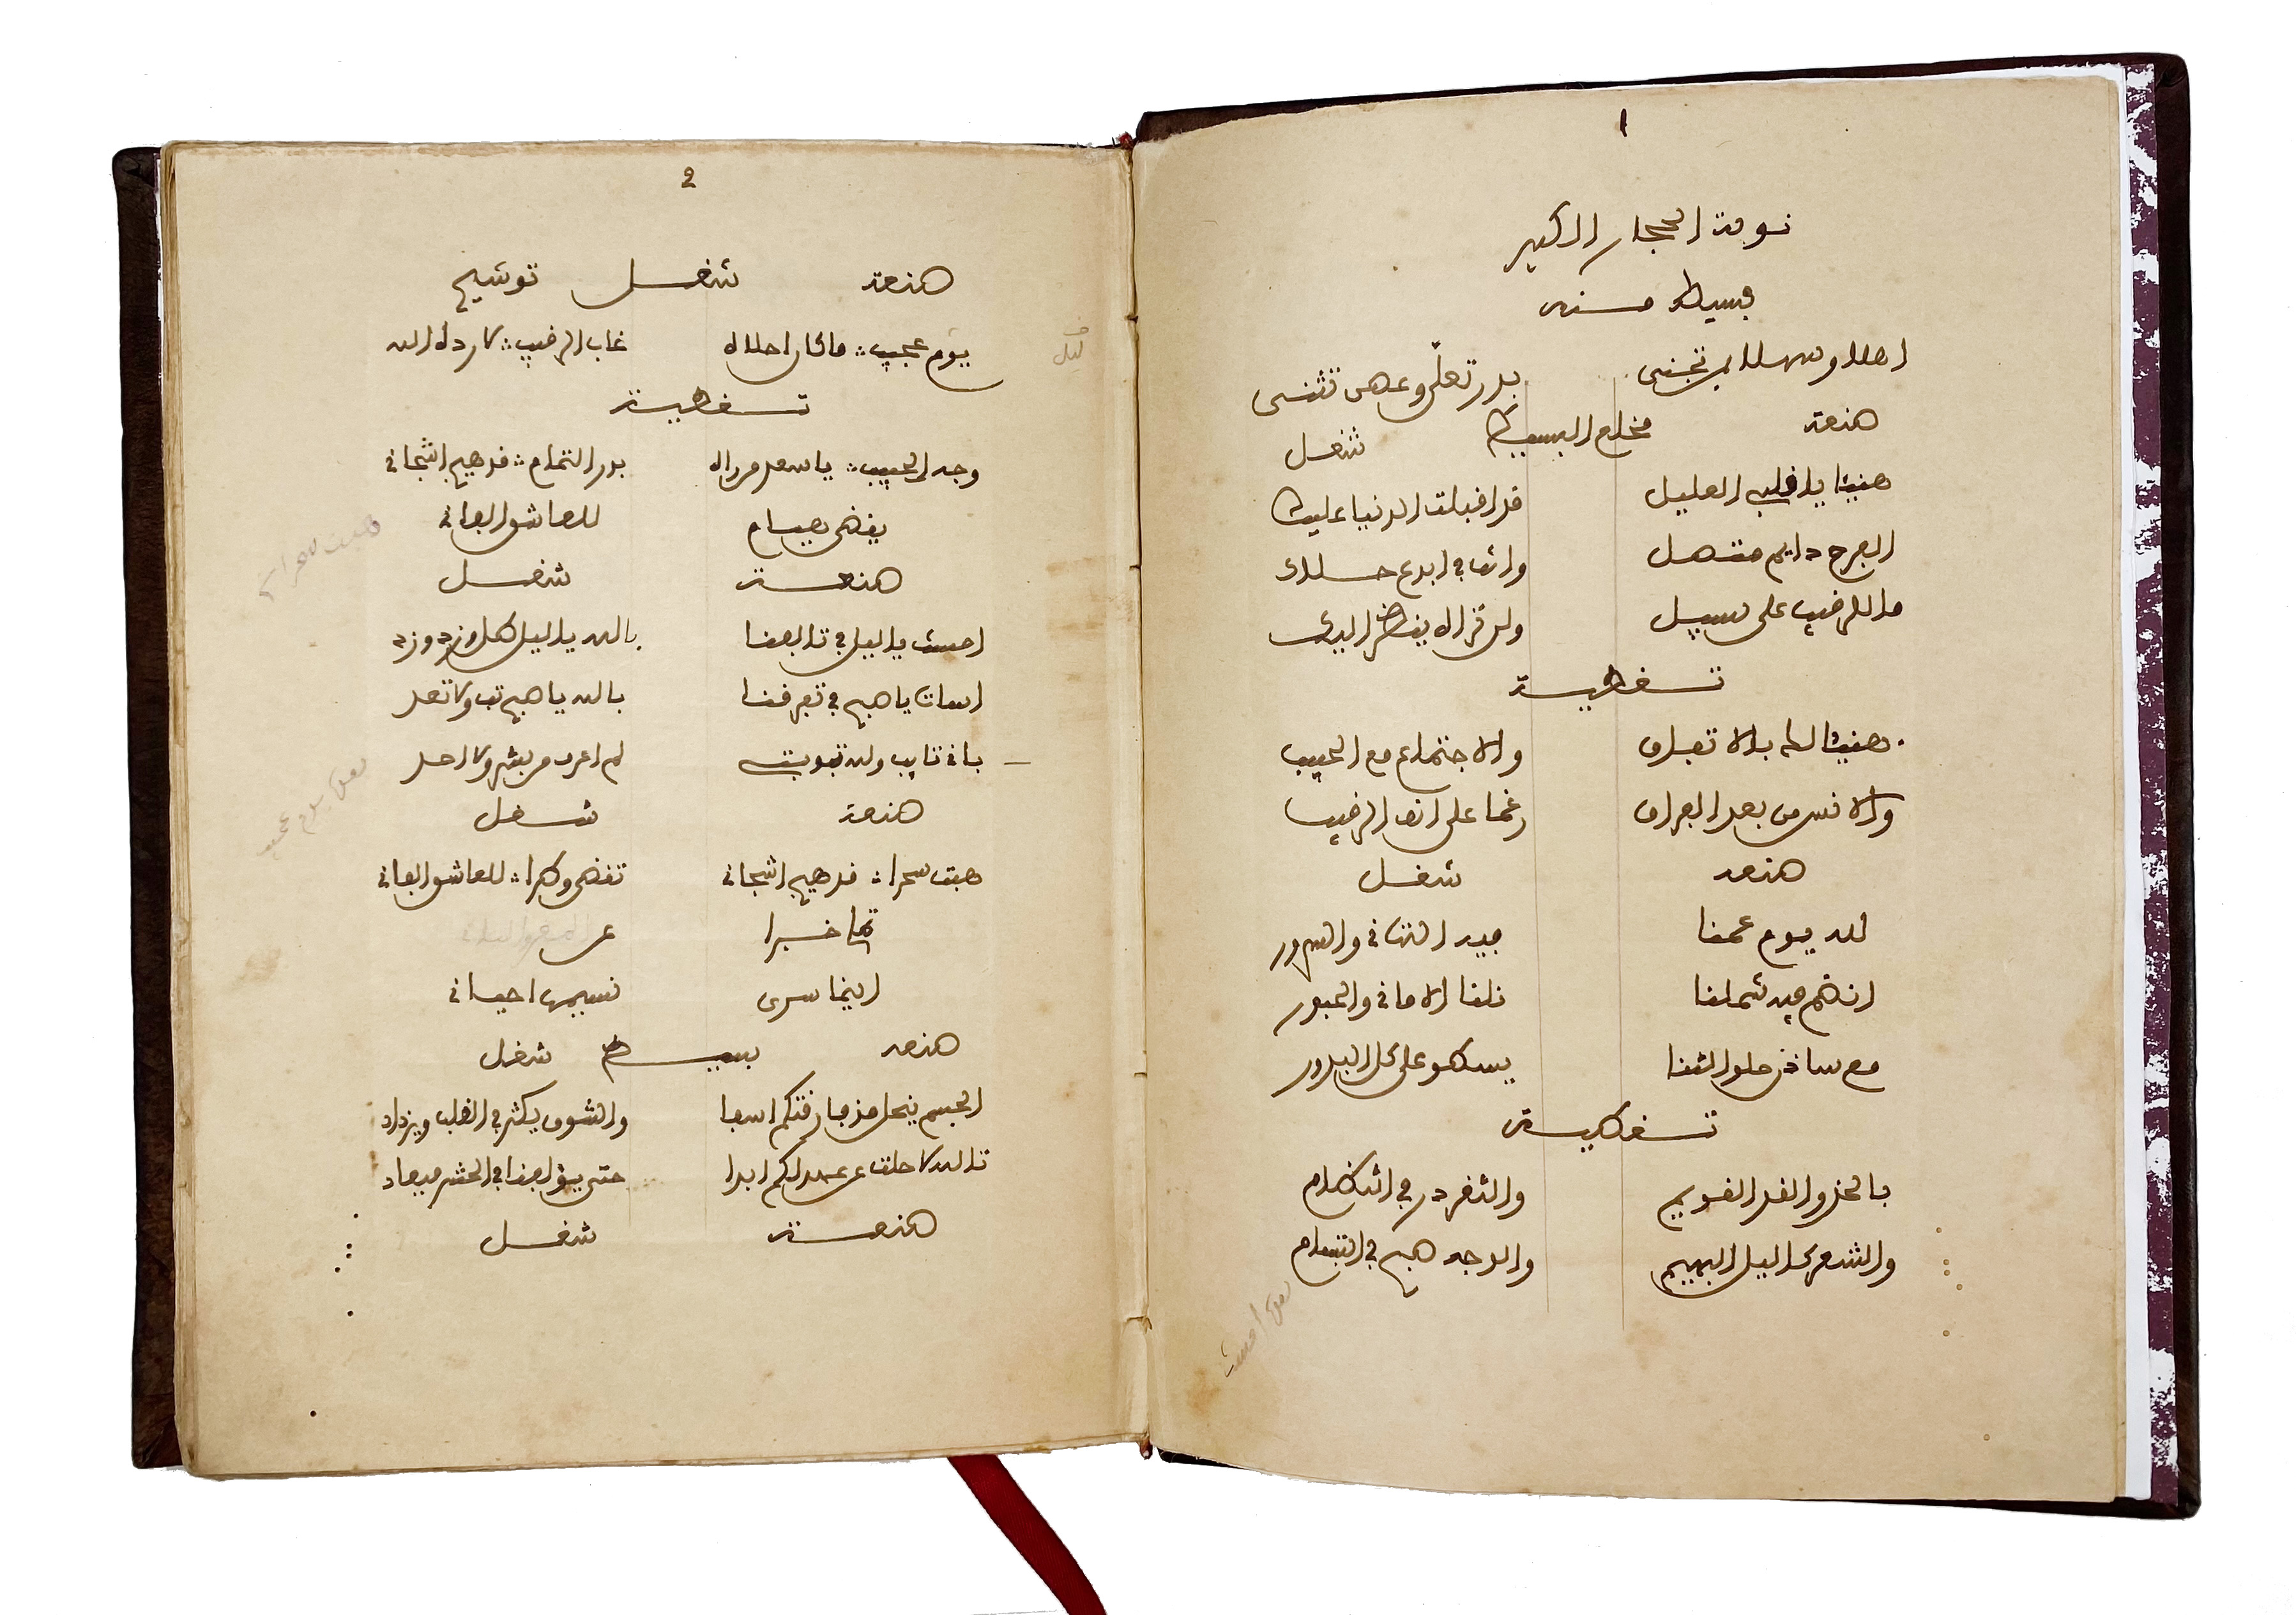 ١
نوبة الحجاز الكبير
بسيط منه
اهلا وسهلا بمن تجنى بدر تعلى وغصن تثنى
صنعة مخلع البسيط شغل
هنيئا يا قلب العليل قد اقبلت الدنيا عليك
الفرح دايم متصل وانت في ابدع حللك
ما للرقيب على سبيل ولن تراه ينظر اليك
تغطية
هنيئا لك بالاتفاق والاجتماع مع الحبيب
والانس من بعد الفراق رغما على انف الرقيب
صنعة شغل
لله يوم عمنا فيه التهاني والسرور
انتظم فيه شملنا نلنا الاماني والحبور
مع ساق حلو الثنا يسطو على كل البدور
تغطية
بالخد والقد القويم والثغر در في انتظام
والشعر كاليل البهيم والوجه صبح في ابتسام
2
صنعة شغل توشيح
يوم عجيب ∴ ما كان احلاه غاب الرقيب ∴ لا رده الله
تغطية
وجه الحبيب ∴ يا سعد من راه بدر التمام ∴ قد هيج اشجاني
يقضى بهيام للعاشق الفاني
صنعة شغل
احسنت يا ليل في تالفنا بالله يا ليل طل وزد وزد
اسات يا صبح في تفرقنا بالله يا صبح تب ولا تعد
باني تايب وله تبوبت لم اعرف من بشر ولا احد
صنعة شغل
هبت سحرا ∴ قد هيج اشجاني تقضى وطرا ∴ للعاشق الفاني
خبرا عن
اينما سرى نسيمها احياني
صنعة بسيط شغل
الجسم ينحل مذ فارقتكم اسفا والشوق يكثر في القلب ويزداد
تالله لا حلت عن عهدكم ابدا حتى يؤلفنا في الحشر ميعاد
صنعة شغل